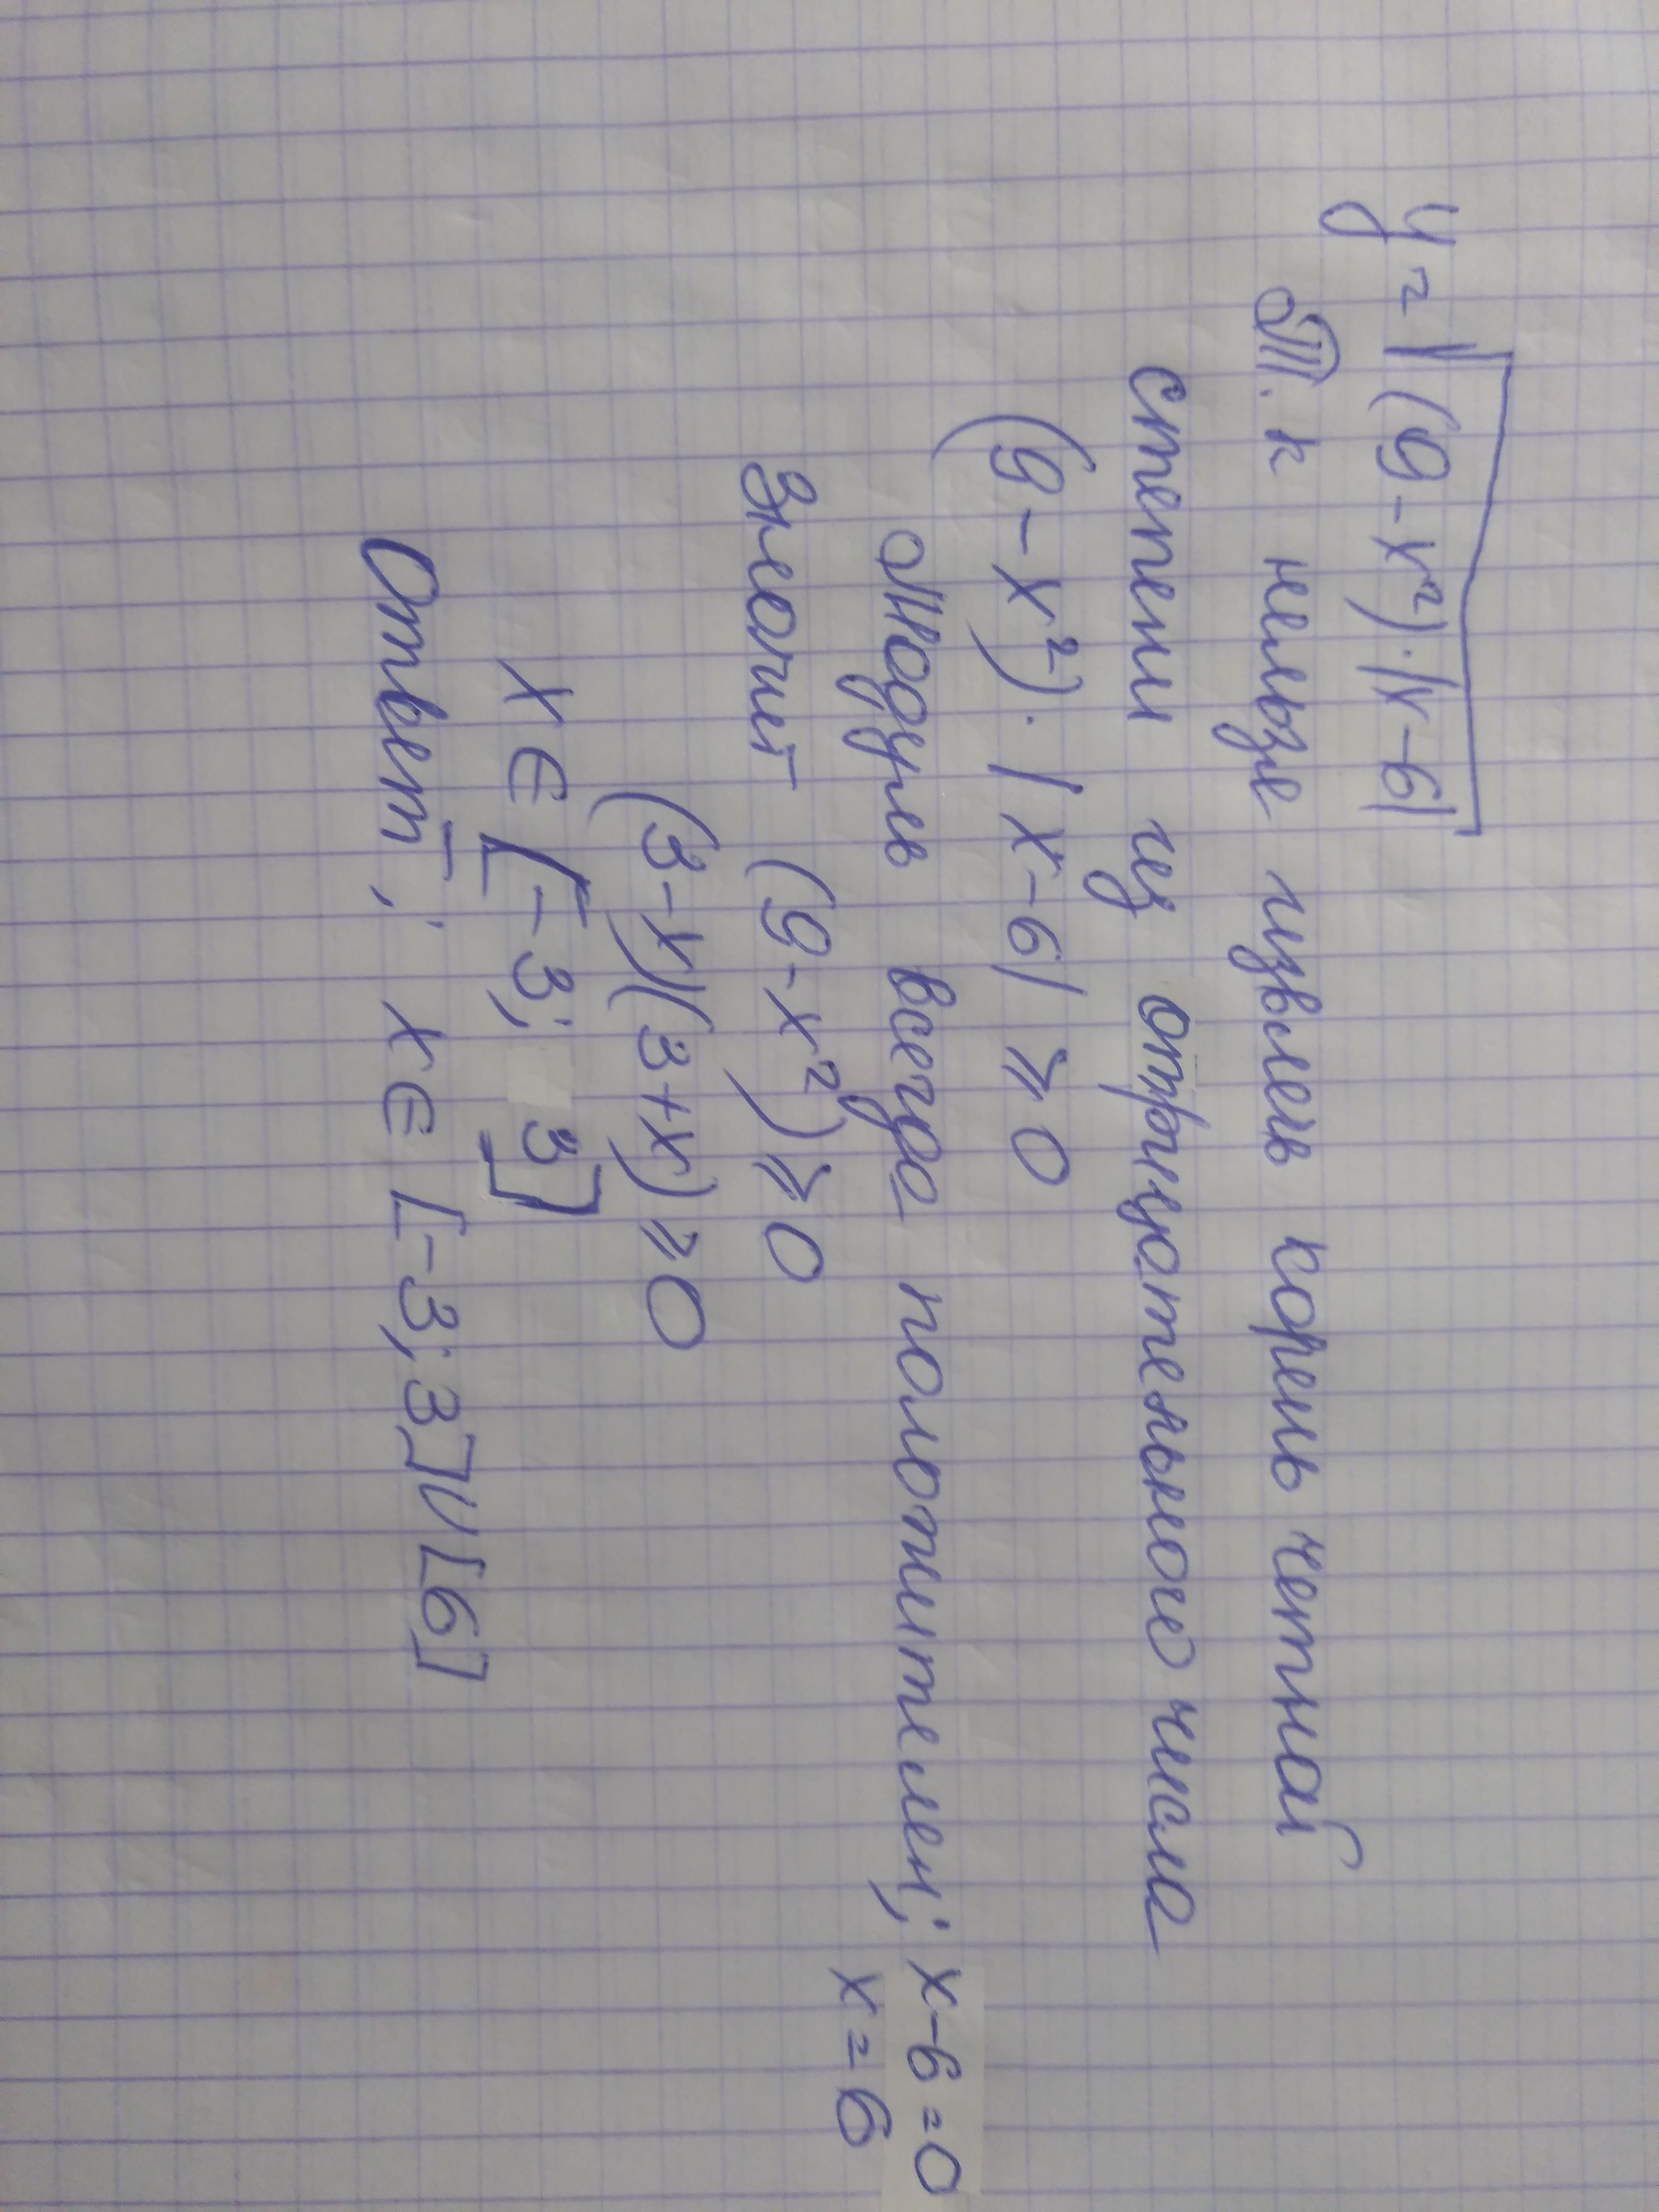 y = √(9-x²)·|x-6|
Т.к нельзя извлечь корень четной
степени из отрицательного числа
(9-x²)·|x-6| ⩾ 0
Модуль всегда положителен; x-6=0
x=6
Значит (9-x²) ⩾ 0
(3-x)(3+x) ⩾ 0
x ∈ [-3; 3]
Ответ; x ∈ [-3; 3]∪[6]